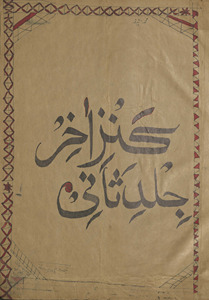 كَنزِ اٰخِر
جِلدِ ثَاتِی